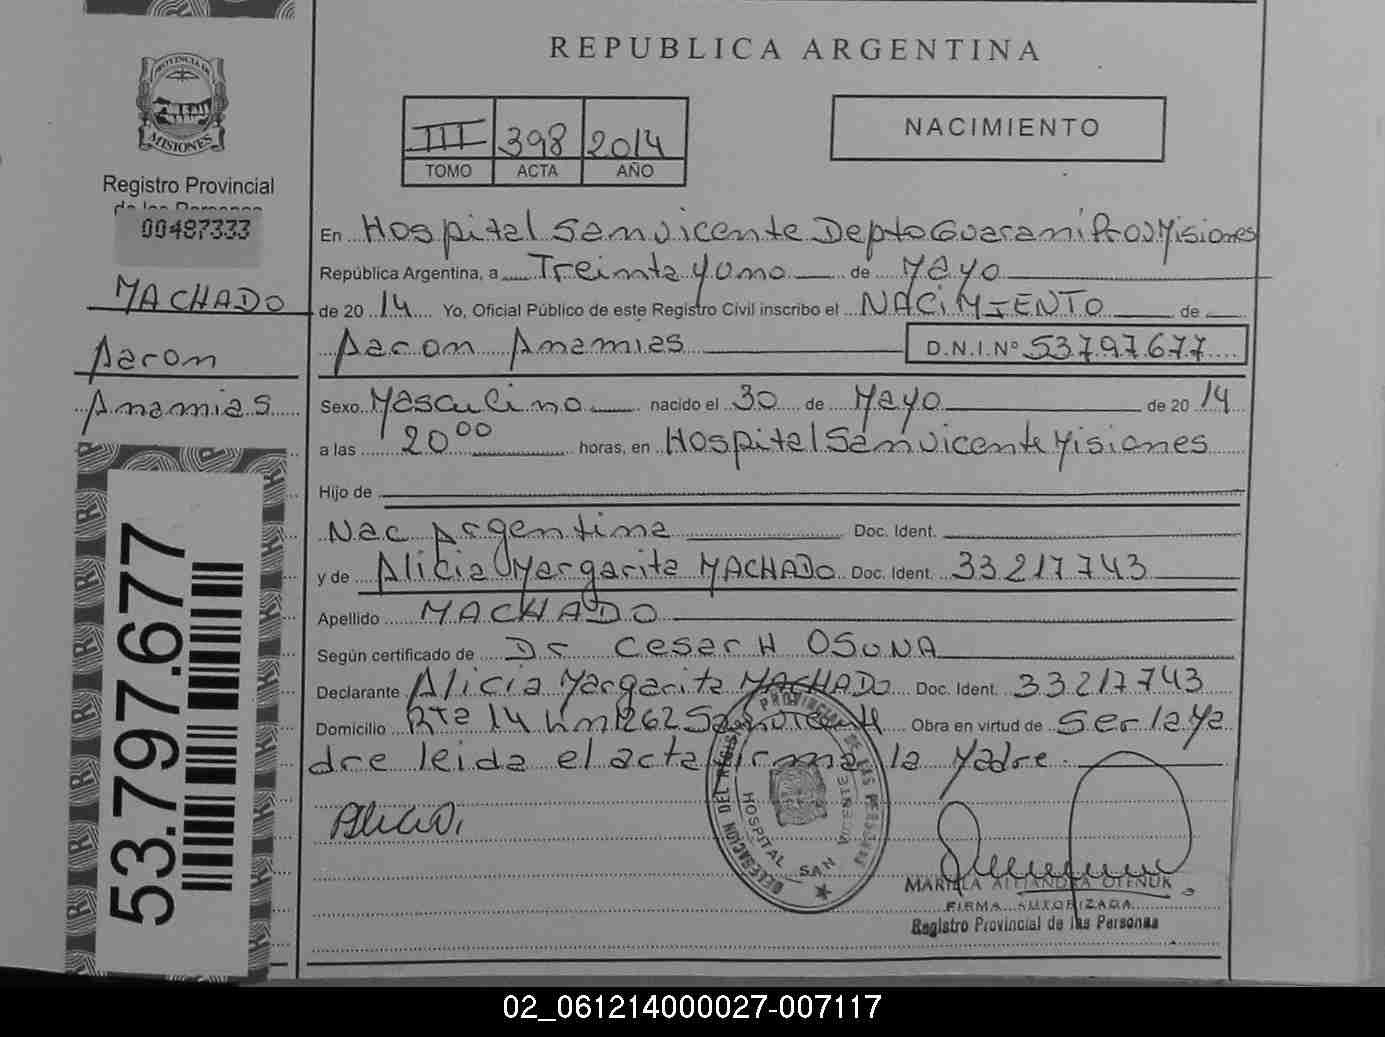 REPUBLICA ARGENTINA
PROVINCIA DE
MISIONES
Registro Provincial
de las Personas
00487333
MACHADO
Aaron
Ananias
53.797.677
III 398 2014
TOMO ACTA AÑO
NACIMIENTO
En Hospital San Vicente Depto Guarani Prov Misiones
República Argentina, a Treinta y uno de Mayo
de 2014 Yo, Oficial Público de este Registro Civil inscribo el NACIMIENTO de
Aaron Ananias D.N.I.Nº 53.797.677
Sexo Masculino nacido el 30 de Mayo de 2014
a las 20 00 horas, en Hospital San Vicente Misiones
Hijo de
Nac Argentina Doc. Ident.
y de Alicia Margarita MACHADO Doc. Ident. 33217743
Apellido MACHADO
Según certificado de Dr Cesar H OSUNA
Declarante Alicia Margarita MACHADO Doc. Ident. 33217743
Domicilio Rta 14 Km 1262 San Vicente Obra en virtud de ser la Ma
dre leida el acta firma la Madre.
DELEGACION DEL REGISTRO PROVINCIAL DE LAS PERSONAS
HOSPITAL SAN VICENTE
FIRMA AUTORIZADA
Registro Provincial de las Personas
02_061214000027-007117